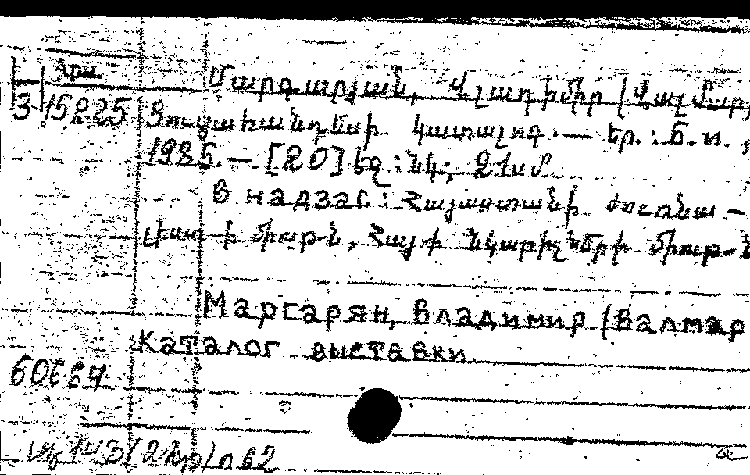 Арм.
3 15225
Մարգարյան, Վլադիմիր (Վալմար,
Ցուցահանդեսի կատալոգ. — Եր. : Б. и.,
1985. — [20] էջ : նկ.; 21սմ
В надзаг: Հայաստանի ժուռնա-
լիստ-ի միութ-ն, Հայ-ի նկարիչների միութ-ն
Маргарян, Владимир (Валмар
Каталог выставки
60667